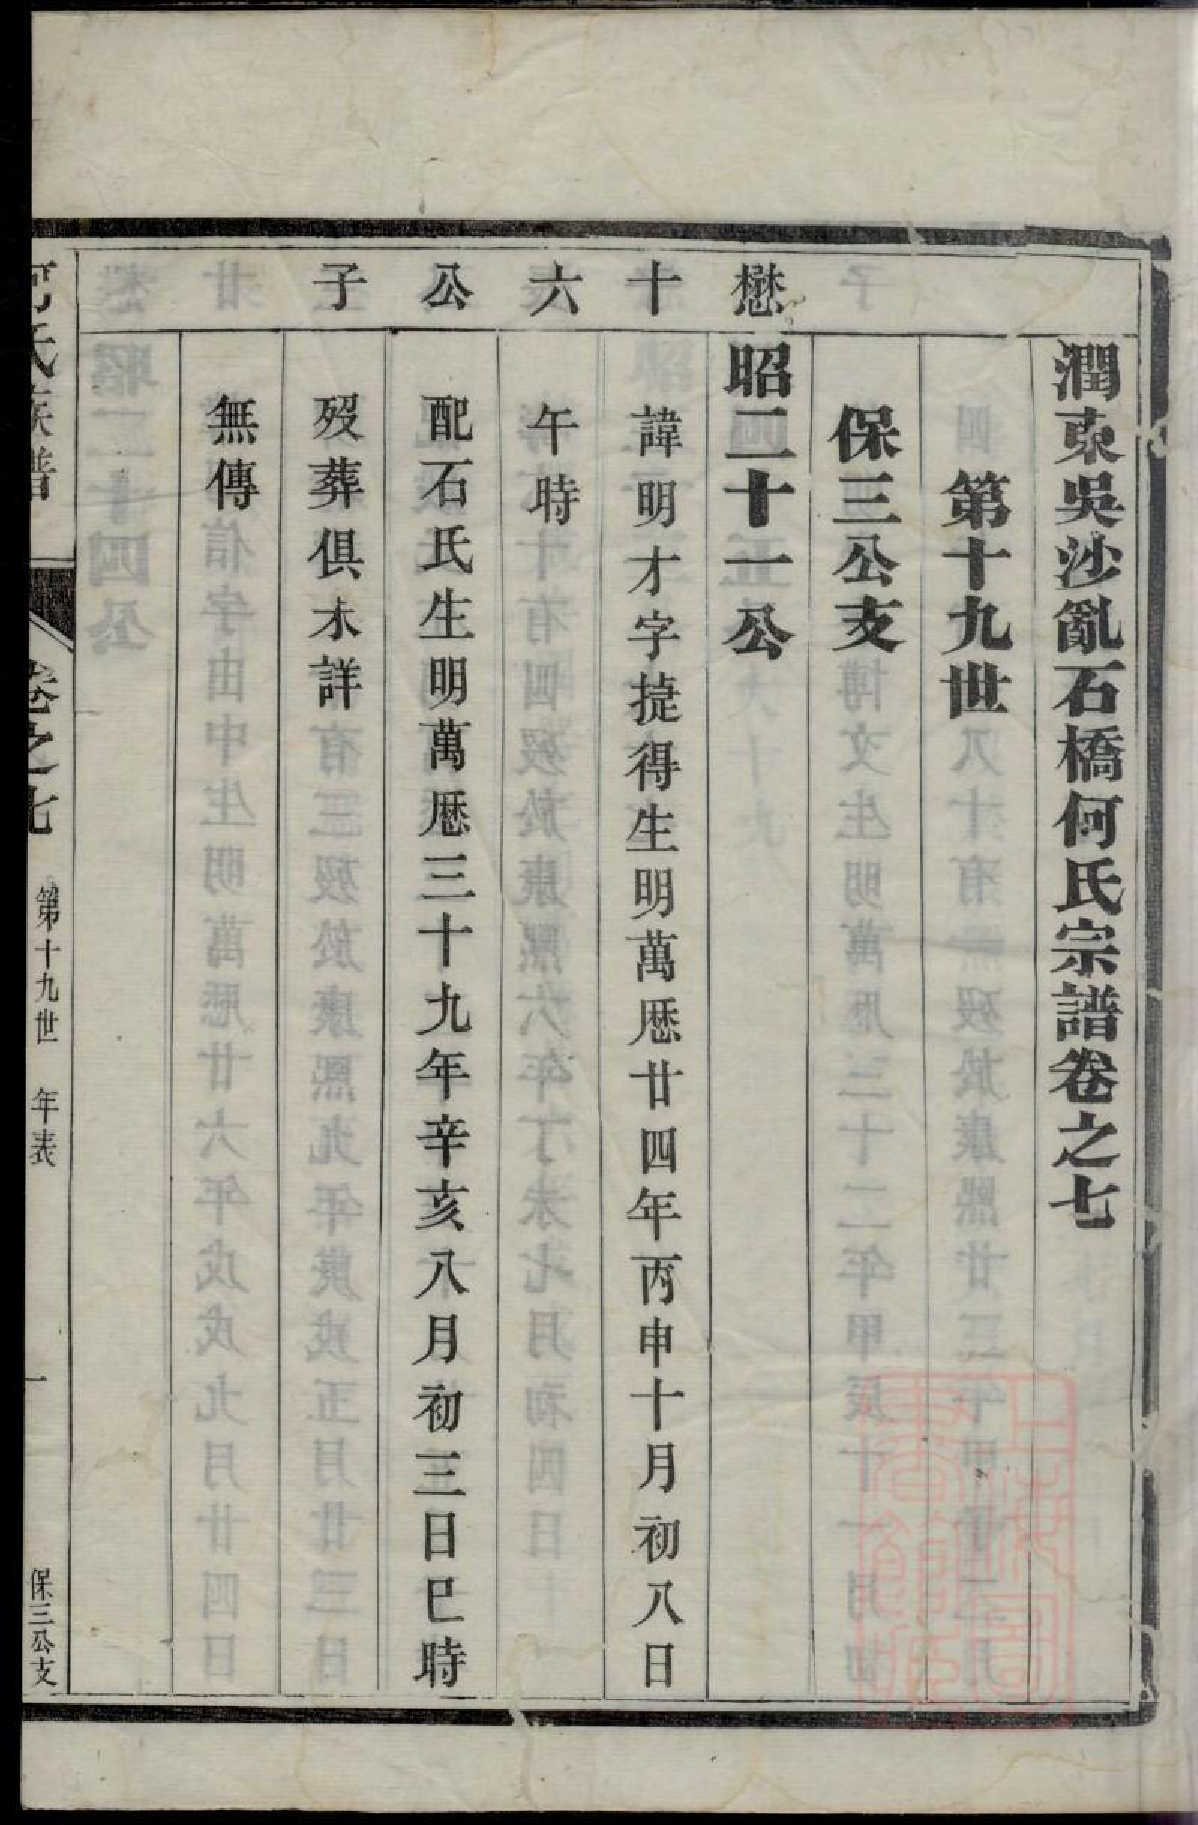 潤東吳沙亂石橋何氏宗譜卷之七
第十九世
保三公支
懋十六公子
昭二十一公
諱明才字㨗得生明萬厯廿四年丙申十月初八日
午時
配石氏生明萬厯三十九年辛亥八月初三日巳時
歿葬俱未詳
無傳
何氏族譜 卷之七 第十九世 年表 一 保三公支